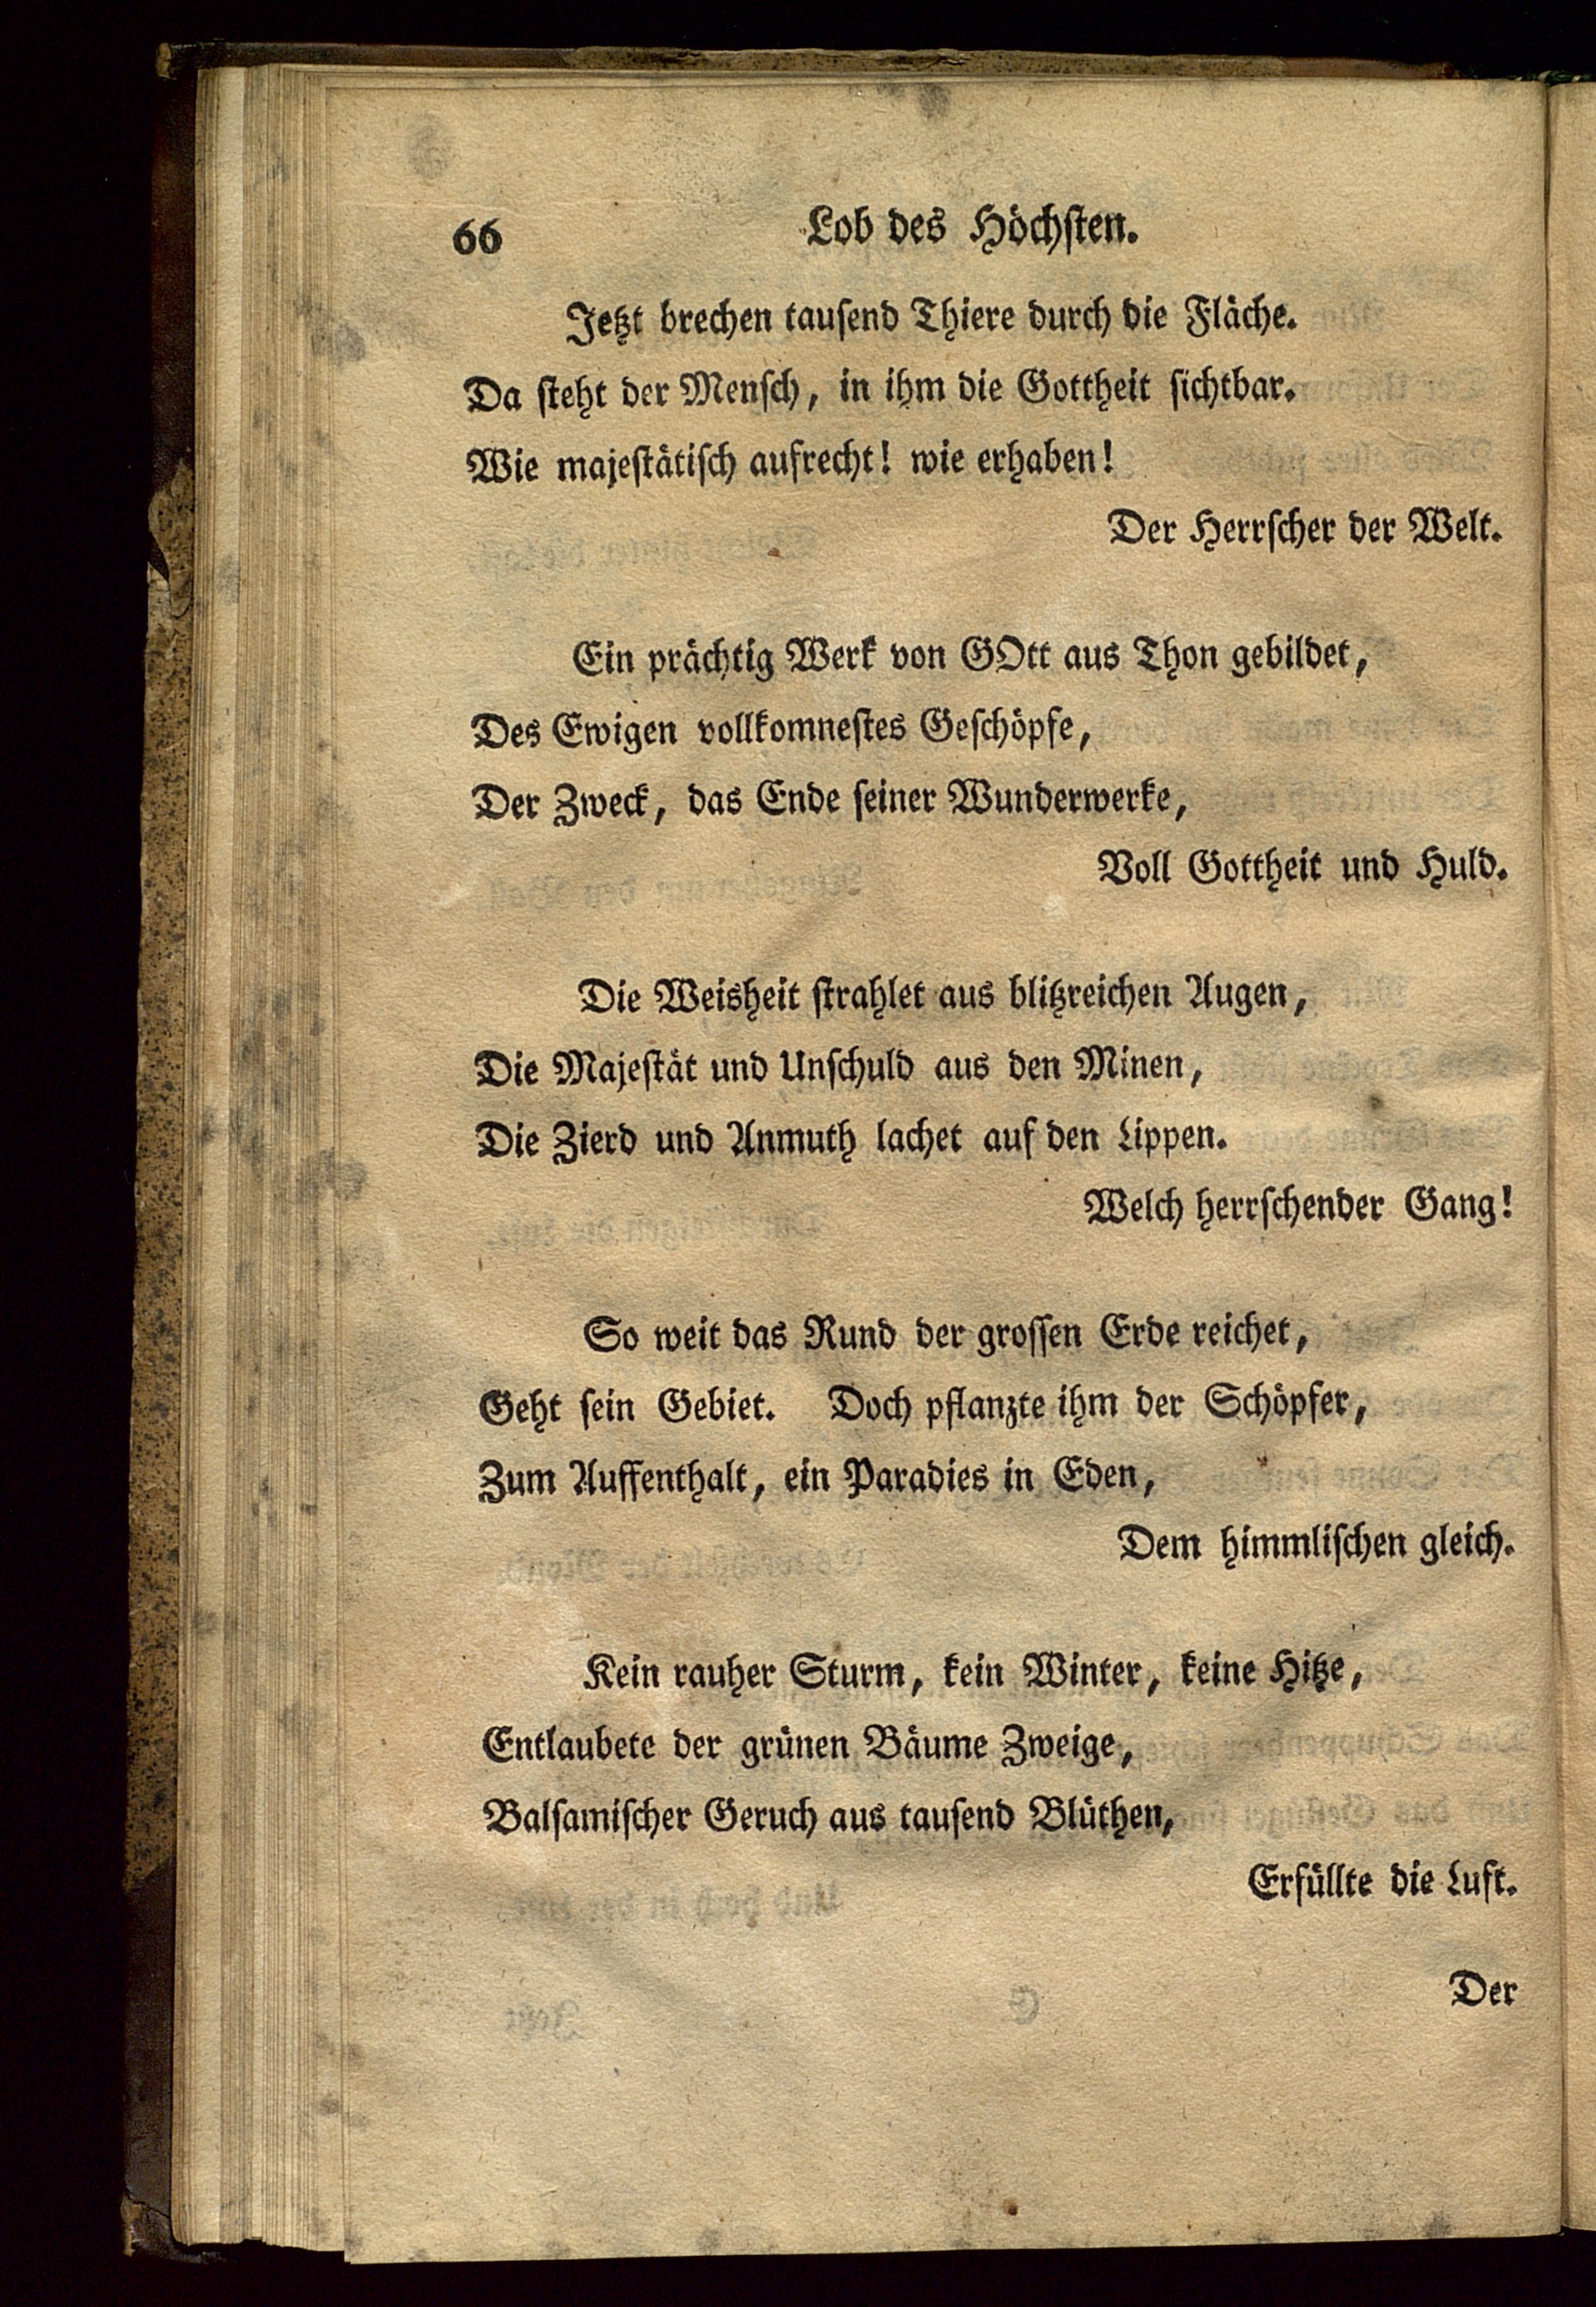 66 Lob des Höchsten.
Jetzt brechen tausend Thiere durch die Fläche.
Da steht der Mensch, in ihm die Gottheit sichtbar.
Wie majestätisch aufrecht! wie erhaben!
Der Herrscher der Welt.
Ein prächtig Werk von GOtt aus Thon gebildet,
Des Ewigen vollkomnestes Geschöpfe,
Der Zweck, das Ende seiner Wunderwerke,
Voll Gottheit und Huld.
Die Weisheit strahlet aus blitzreichen Augen,
Die Majestät und Unschuld aus den Minen,
Die Zierd und Anmuth lachet auf den Lippen.
Welch herrschender Gang!
So weit das Rund der grossen Erde reichet,
Geht sein Gebiet. Doch pflanzte ihm der Schöpfer,
Zum Auffenthalt, ein Paradies in Eden,
Dem himmlischen gleich.
Kein rauher Sturm, kein Winter, keine Hitze,
Entlaubete der grünen Bäume Zweige,
Balsamischer Geruch aus tausend Blüthen,
Erfüllte die Luft.
Der